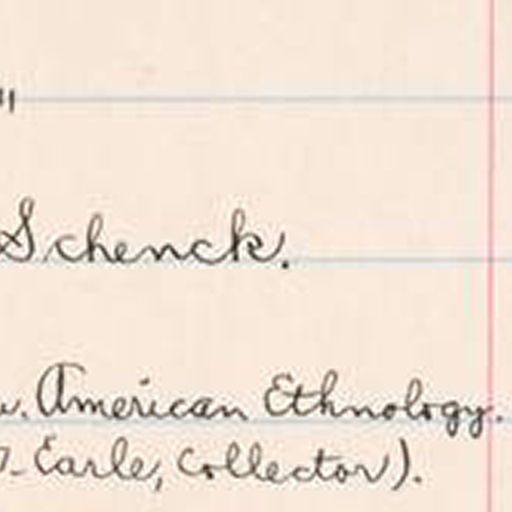 Schenck.
American Ethnology.
Earle, Collector).